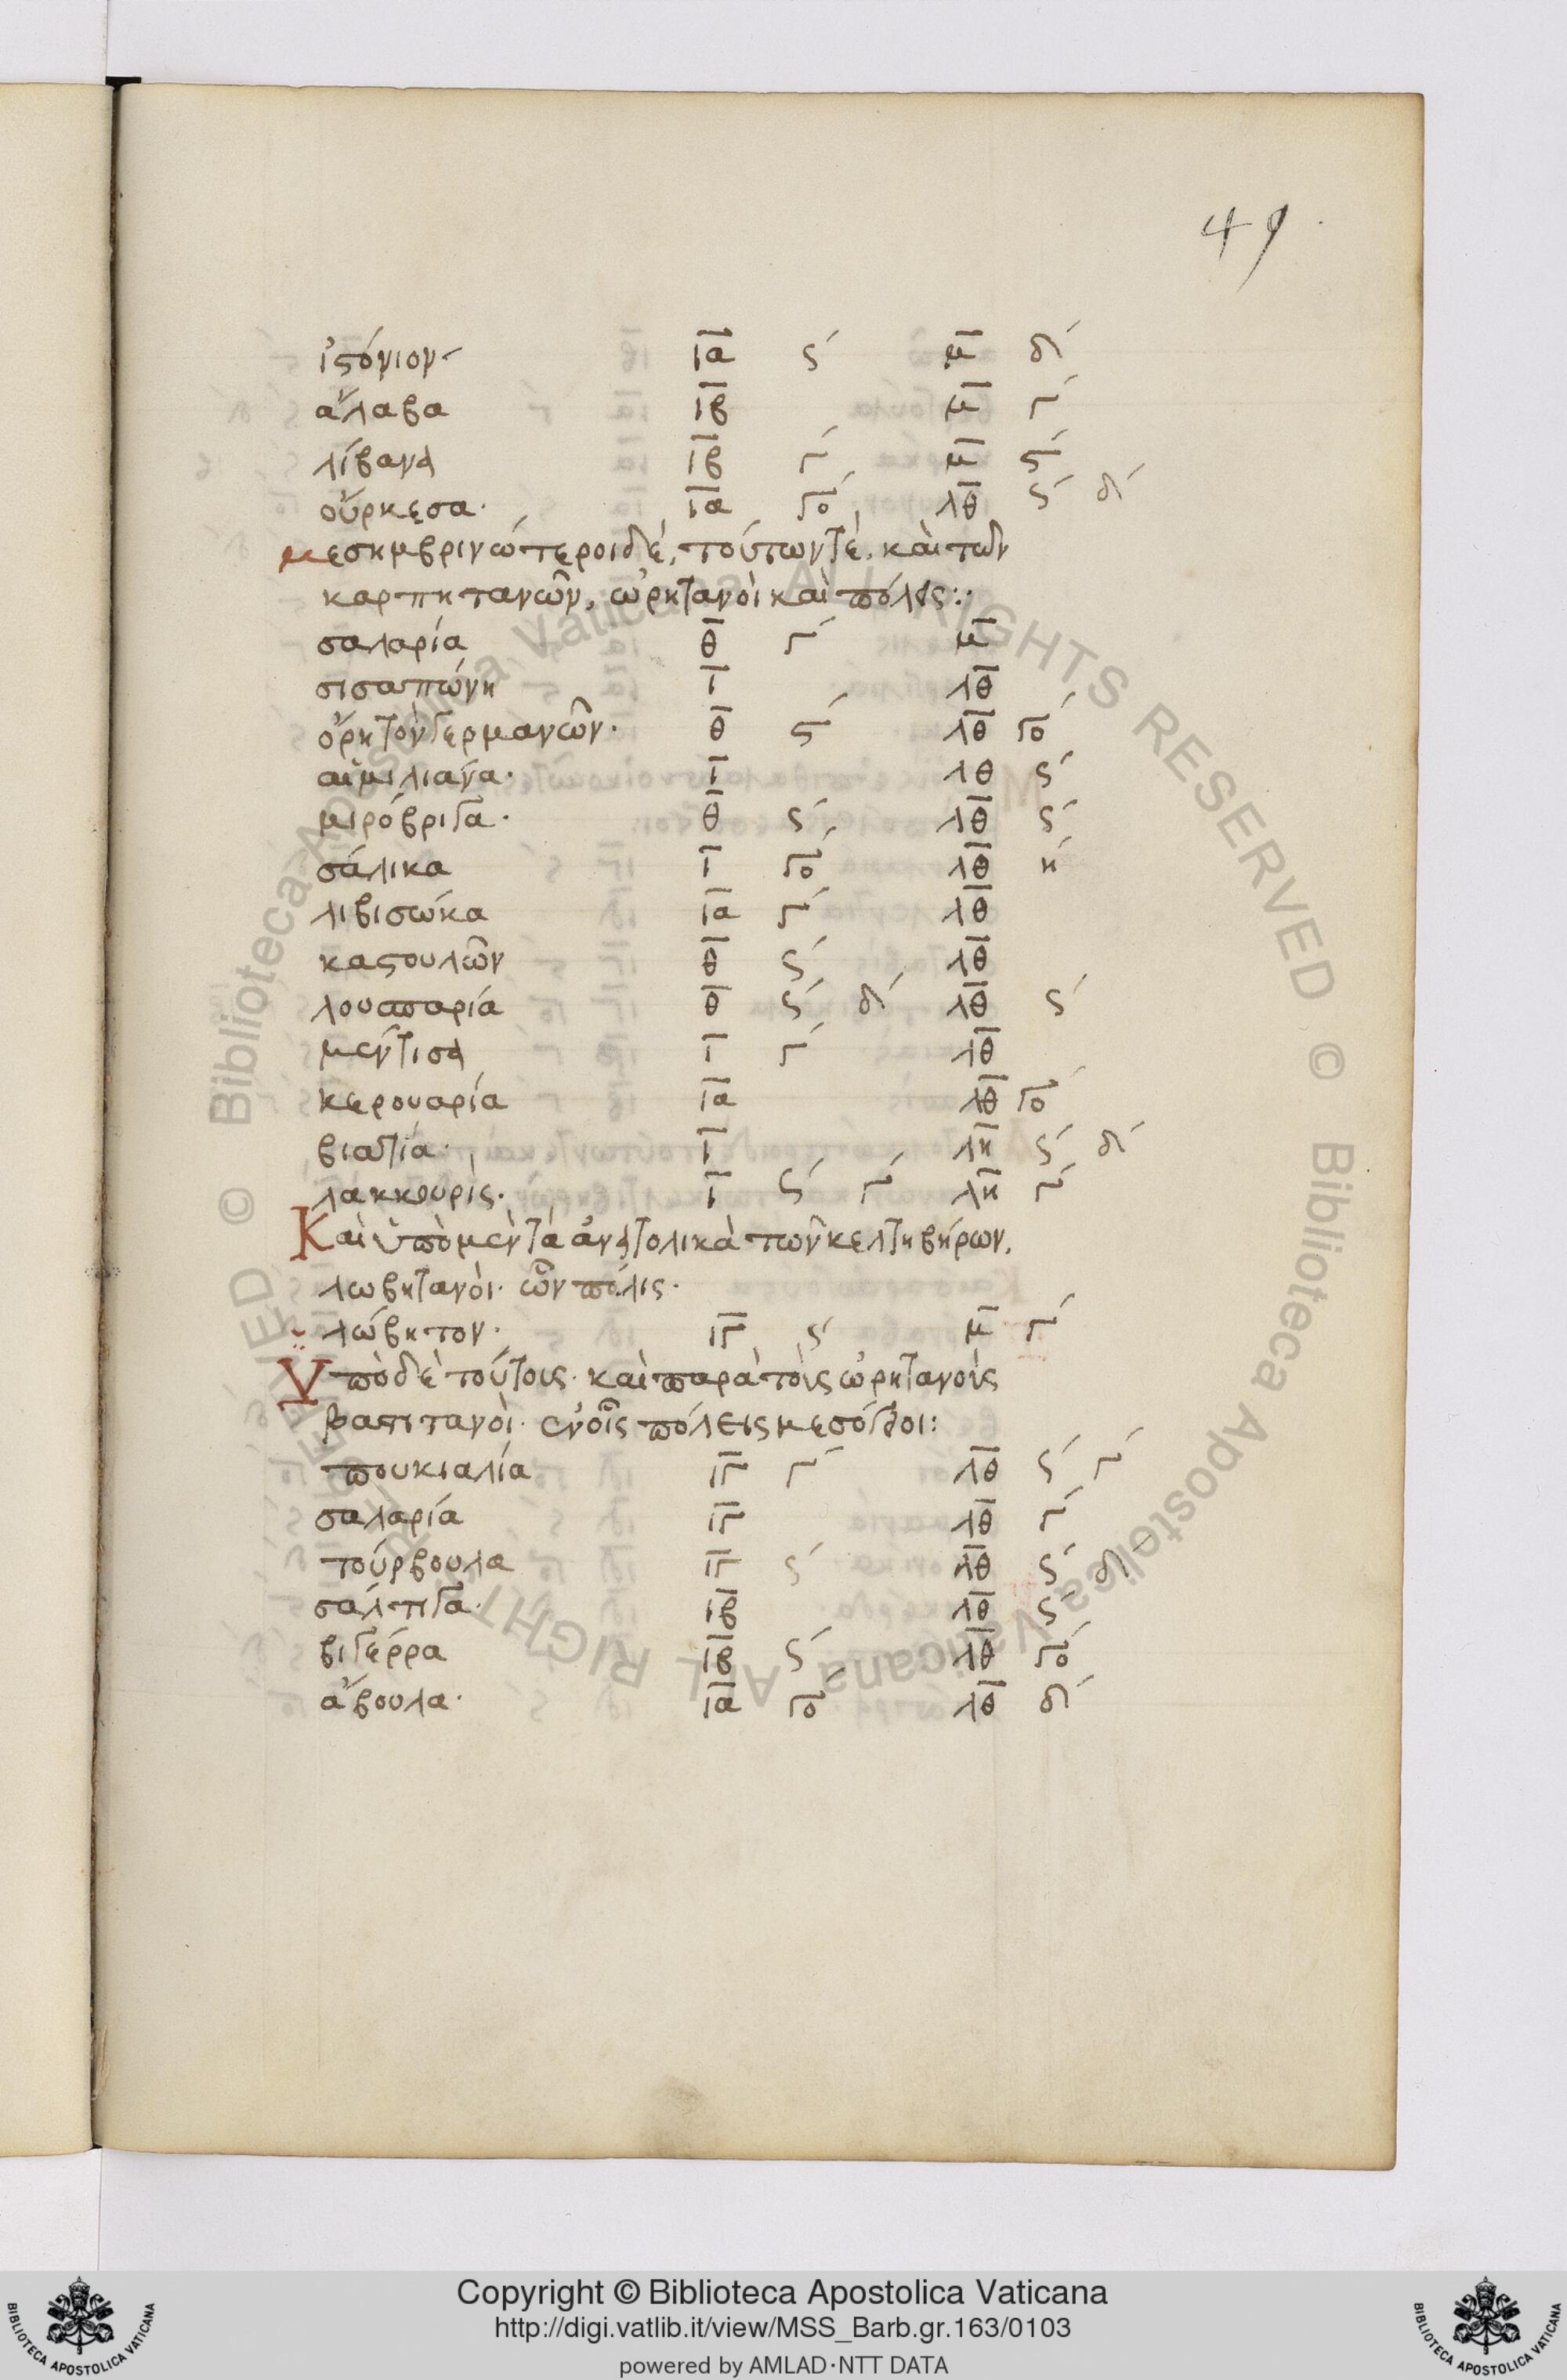 49.
ἰστόνιον ια ϛ´ μ δ´
ἄλαβα ιβ μ γ´
λίβανα ιβ γ´ μ ϛ´
οὔρκεσα· ια γο´ λθ ϛ´ δ´
μεσημβρινώτεροι δέ, τούτων τέ, καὶ τῶν
καρπητανῶν, ὠρητανοὶ καὶ πόλεις:·
σαλαρία θ γ´ μ
σισαπώνη ι λθ
ὄρητον γερμανῶν· θ ϛ´ λθ γο´
αἰμιλιάνα· ι λθ ϛ´
μιρόβριγα· θ ϛ´ λθ ϛ´
σάλικα ι γο´ λθ η´
λιβισώκα ια γ´ λθ
καστουλῶν θ ϛ´ λθ
λουπαρία θ ϛ´ δ´ λθ ϛ´
μέντισα ι γ´ λθ
κερουαρία ια λθ γο´
βιατία· ι λη ϛ´ δ´
λακκουρίς· ι ϛ´ γ´ λη γ´
Καὶ ὑπὸ μὲν τὰ ἀνατολικὰ τῶν κελτηβήρων,
λωβητανοὶ· ὧν πόλις·
λώβητον· ιγ ϛ´ μ γ´
Ὑπὸ δὲ τούτοις· καὶ παρὰ τοῖς ὠρητανοῖς
βαπιτανοὶ· ἐν οἷς πόλεις μεσόγιοι:
πουκιαλία ιγ γ´ λθ ϛ´ γ´
σαλαρία ιγ λθ γ´
τούρβουλα ιγ ϛ´ λθ ϛ´ δ´
σάλτιγα· ιβ λθ ϛ´
βιγέρρα ιβ ϛ´ λθ γο´
ἄβουλα· ια γο´ λθ δ´
© Biblioteca Apostolica Vaticana ALL RIGHTS RESERVED © Biblioteca Apostolica Vaticana ALL RIGHTS RESERVED
BIBLIOTECA APOSTOLICA VATICANA
Copyright © Biblioteca Apostolica Vaticana
http://digi.vatlib.it/view/MSS_Barb.gr.163/0103
powered by AMLAD·NTT DATA
BIBLIOTECA APOSTOLICA VATICANA